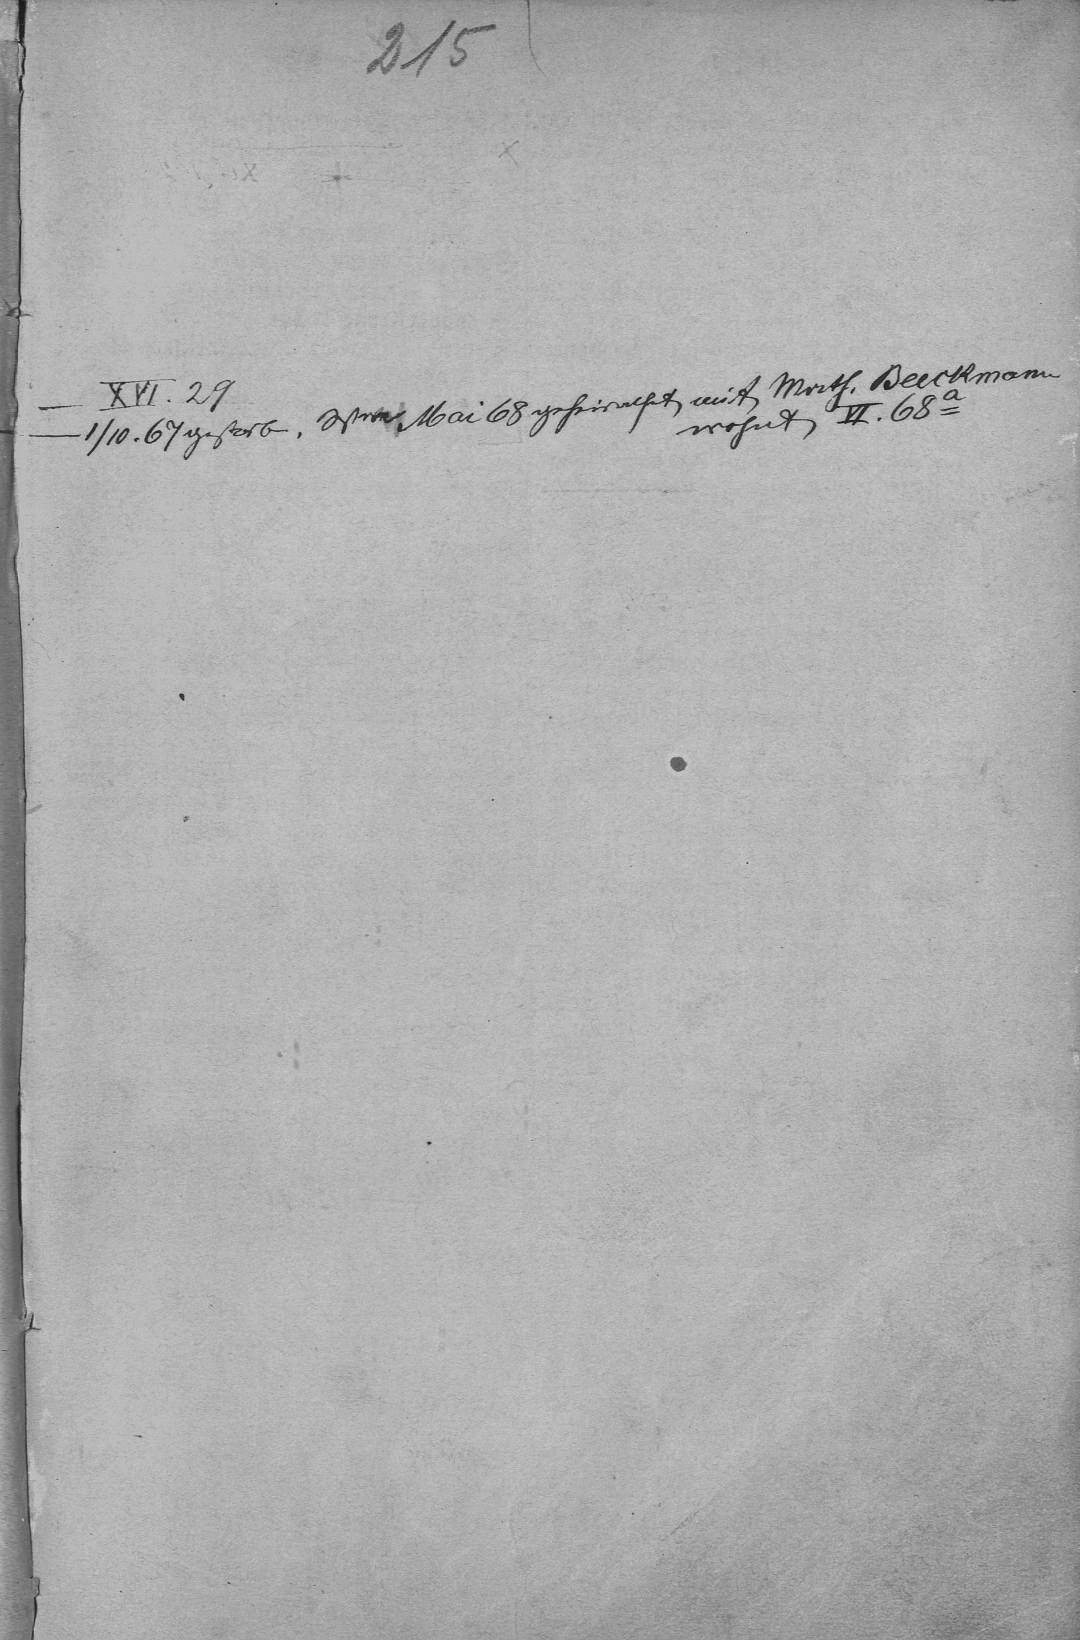 215
— XVI. 29
— 1/10. 67 gestorb. Mai 68 geheirathet mit Math. Beeckmann
wohnt VI. 68a